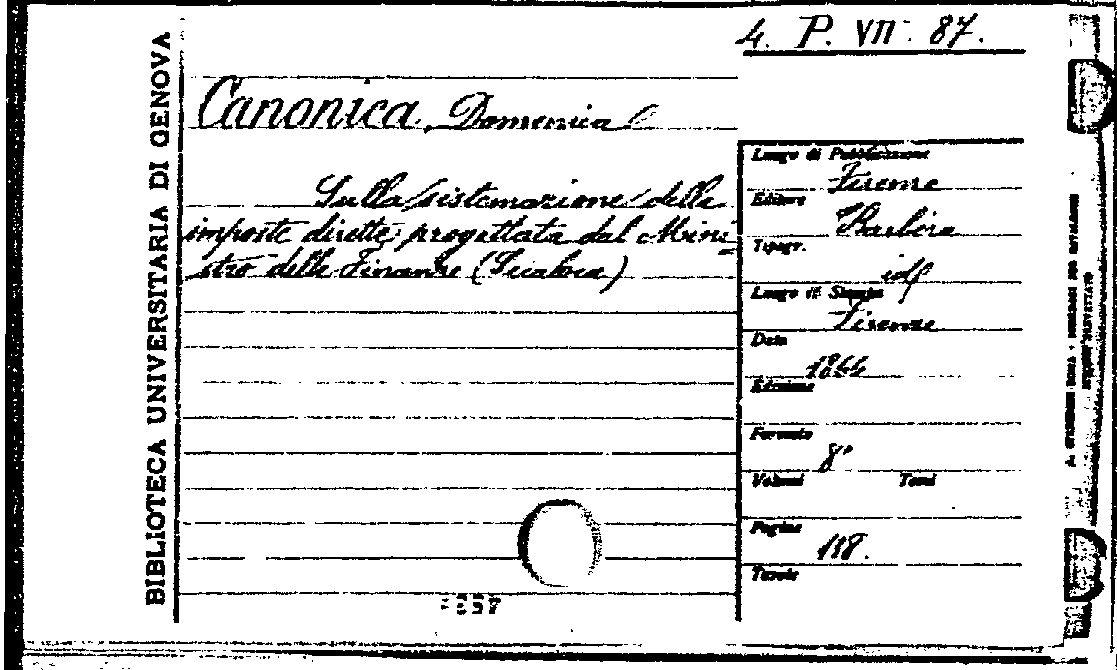 4. P. VII. 87.
BIBLIOTECA UNIVERSITARIA DI GENOVA
Canonica, Domenica
Sulla sistemazione delle
imposte dirette progettata dal Mini-
stro delle Finanze (Scialoia)
Luogo di Pubblicazione
Firenze
Editore
Barbèra
Tipogr.
id
Luogo di Stampa
Firenze
Data
1866
Edizione
Formato
8°
Volumi Tomi
Pagine
118.
Tavole